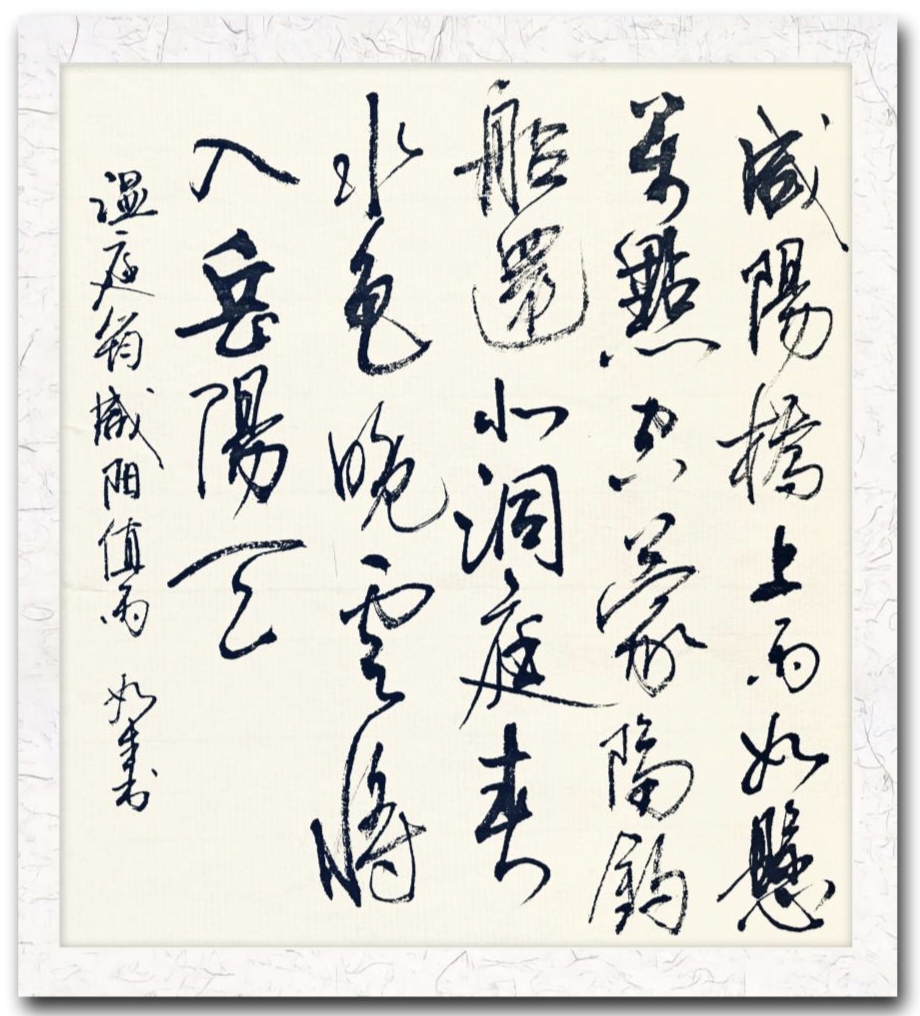 咸陽橋上雨如懸
萬點空蒙隔釣
船還似洞庭春
水色晚雲將
入岳陽天
温庭筠咸阳值雨 如